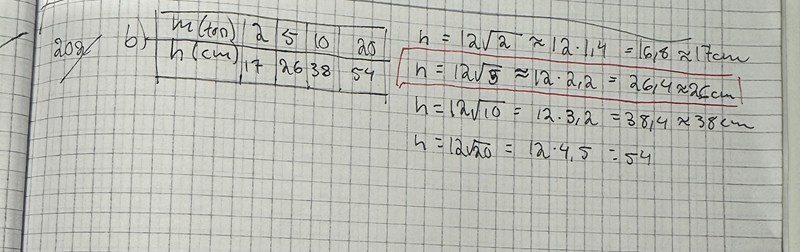 208/ b) m(ton) 2 5 10 20
h(cm) 17 26 38 54
h = 12√2 ≈ 12·1,4 = 16,8 ≈ 17cm
h = 12√5 ≈ 12·2,2 = 26,4 ≈ 26cm
h = 12√10 = 12·3,2 = 38,4 ≈ 38cm
h = 12√20 = 12·4,5 = 54